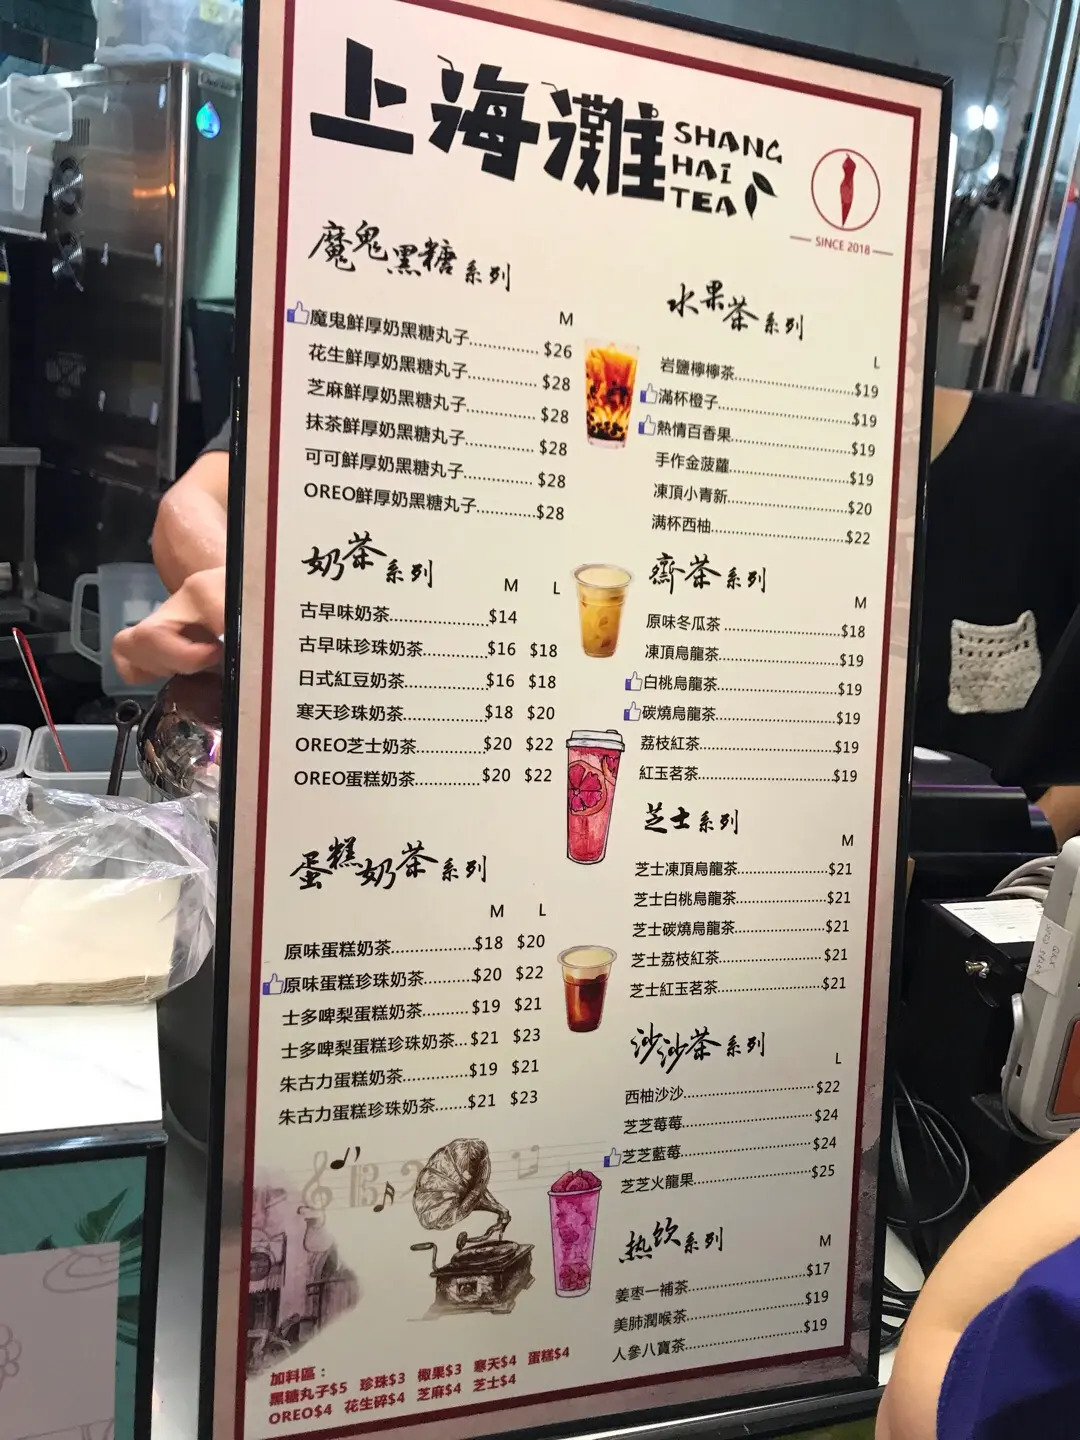 上海灘
SHANG
HAI
TEA
SINCE 2018
魔鬼黑糖系列
M
魔鬼鮮厚奶黑糖丸子.............. $26
花生鮮厚奶黑糖丸子.............. $28
芝麻鮮厚奶黑糖丸子.............. $28
抹茶鮮厚奶黑糖丸子.............. $28
可可鮮厚奶黑糖丸子.............. $28
OREO鮮厚奶黑糖丸子............$28
奶茶系列
M L
古早味奶茶....................$14
古早味珍珠奶茶.............$16 $18
日式紅豆奶茶.................$16 $18
寒天珍珠奶茶.................$18 $20
OREO芝士奶茶.............$20 $22
OREO蛋糕奶茶.............$20 $22
蛋糕奶茶系列
M L
原味蛋糕奶茶.................$18 $20
原味蛋糕珍珠奶茶..........$20 $22
士多啤梨蛋糕奶茶..........$19 $21
士多啤梨蛋糕珍珠奶茶...$21 $23
朱古力蛋糕奶茶.............$19 $21
朱古力蛋糕珍珠奶茶.......$21 $23
加料區：
黑糖丸子$5 珍珠$3 椰果$3 寒天$4 蛋糕$4
OREO$4 花生碎$4 芝麻$4 芝士$4
水果茶系列
L
岩鹽檸檸茶........................$19
滿杯橙子...........................$19
熱情百香果........................$19
手作金菠蘿........................$19
凍頂小青新........................$20
满杯西柚...........................$22
齋茶系列
M
原味冬瓜茶........................$18
凍頂烏龍茶........................$19
白桃烏龍茶........................$19
碳燒烏龍茶........................$19
荔枝紅茶...........................$19
紅玉茗茶...........................$19
芝士系列
M
芝士凍頂烏龍茶..................$21
芝士白桃烏龍茶..................$21
芝士碳燒烏龍茶..................$21
芝士荔枝紅茶.....................$21
芝士紅玉茗茶.....................$21
沙沙茶系列
L
西柚沙沙...........................$22
芝芝莓莓...........................$24
芝芝藍莓...........................$24
芝芝火龍果........................$25
热饮系列
M
姜枣一補茶........................$17
美肺潤喉茶........................$19
人參八寶茶........................$19